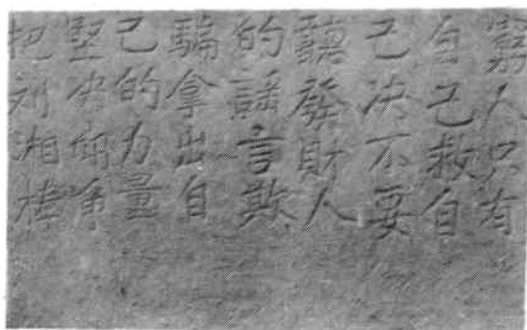 窮人只有
自己救自
己决不要
聽發財人
的謠言欺
騙拿出自
己的力量
堅决
把刘湘